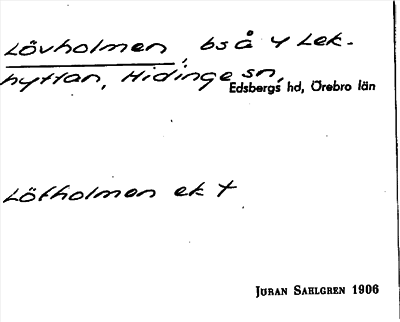 Lövholmen, bs å Y Lek-
hyttan, Hidinge sn,
Edsbergs hd, Örebro län
Löfholmen ek †
Jöran Sahlgren 1906